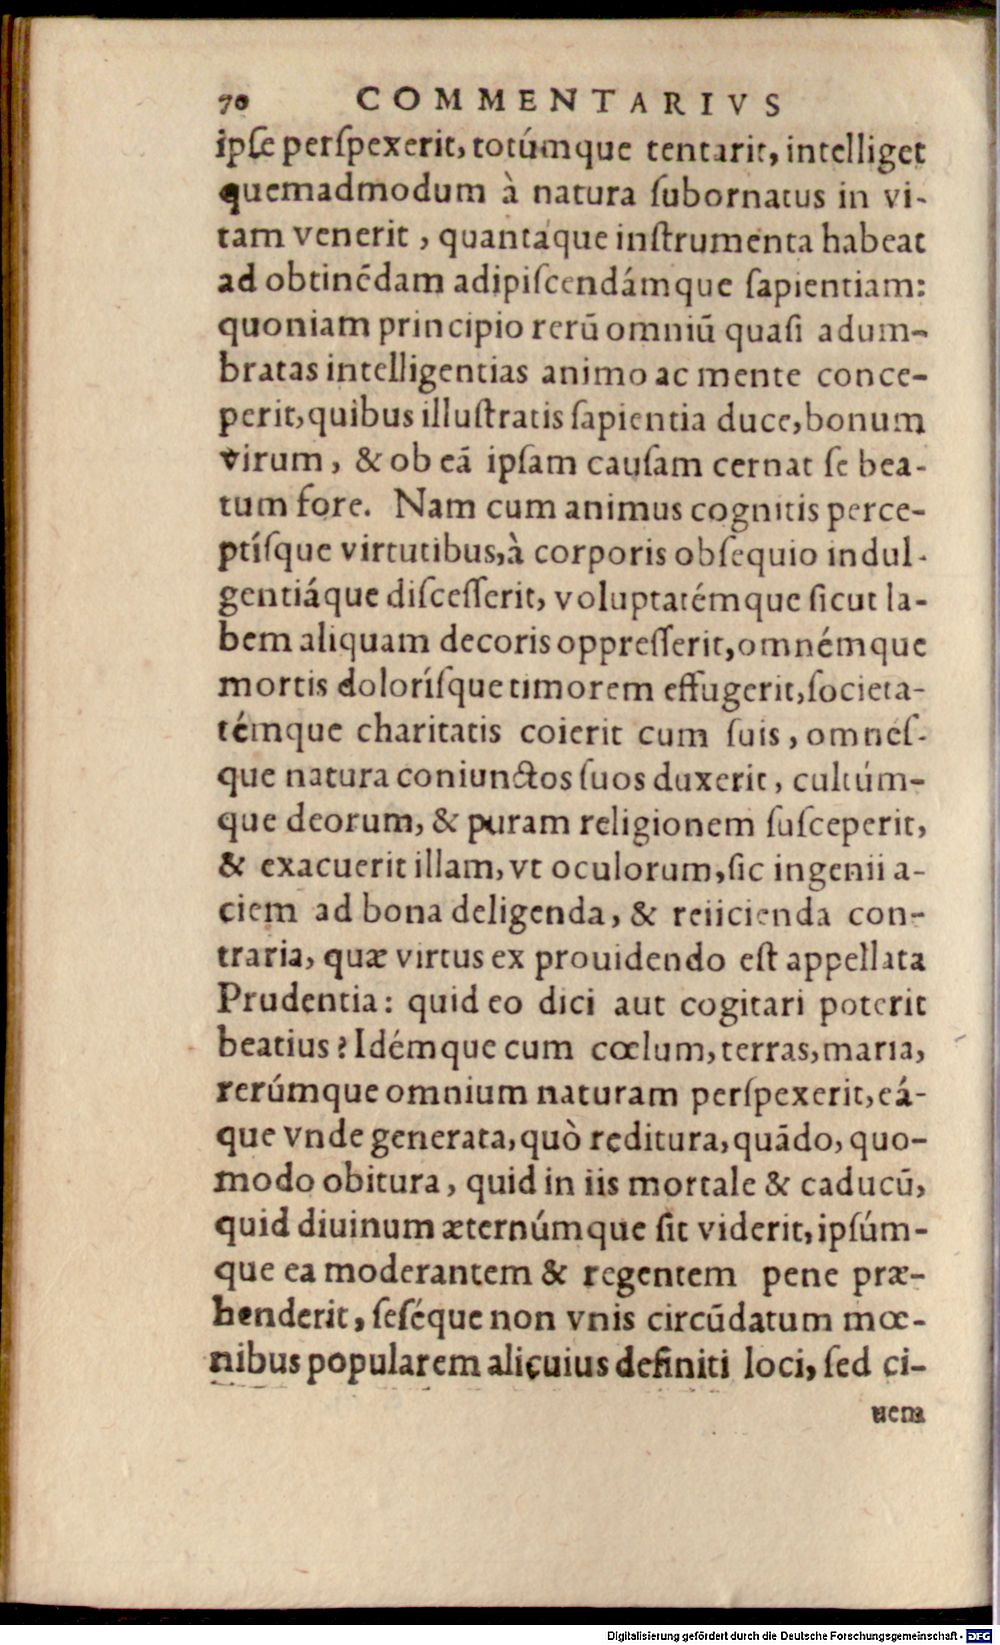 70 COMMENTARIVS
ipſe perſpexerit, totúmque tentarit, intelliget
quemadmodum à natura ſubornatus in vi-
tam venerit, quantáque inſtrumenta habeat
ad obtinēdam adipiſcendámque ſapientiam:
quoniam principio rerū omniū quaſi adum-
bratas intelligentias animo ac mente conce-
perit, quibus illuſtratis ſapientia duce, bonum
virum, & ob eā ipſam cauſam cernat ſe bea-
tum fore. Nam cum animus cognitis perce-
ptíſque virtutibus, à corporis obſequio indul-
gentiáque diſceſſerit, voluptatémque ſicut la-
bem aliquam decoris oppreſſerit, omnémque
mortis doloríſque timorem effugerit, ſocieta-
témque charitatis coierit cum ſuis, omnéſ-
que natura coniunctos ſuos duxerit, cultúm-
que deorum, & puram religionem ſuſceperit,
& exacuerit illam, vt oculorum, ſic ingenii a-
ciem ad bona deligenda, & reiicienda con-
traria, quæ virtus ex prouidendo eſt appellata
Prudentia: quid eo dici aut cogitari poterit
beatius? Idémque cum cœlum, terras, maria,
rerúmque omnium naturam perſpexerit, eá-
que vnde generata, quò reditura, quādo, quo-
modo obitura, quid in iis mortale & caducū,
quid diuinum æternúmque ſit viderit, ipſúm-
que ea moderantem & regentem pene præ-
henderit, ſeſéque non vnis circūdatum mœ-
nibus popularem alicuius definiti loci, ſed ci-
uem
Digitalisierung gefördert durch die Deutsche Forschungsgemeinschaft - DFG